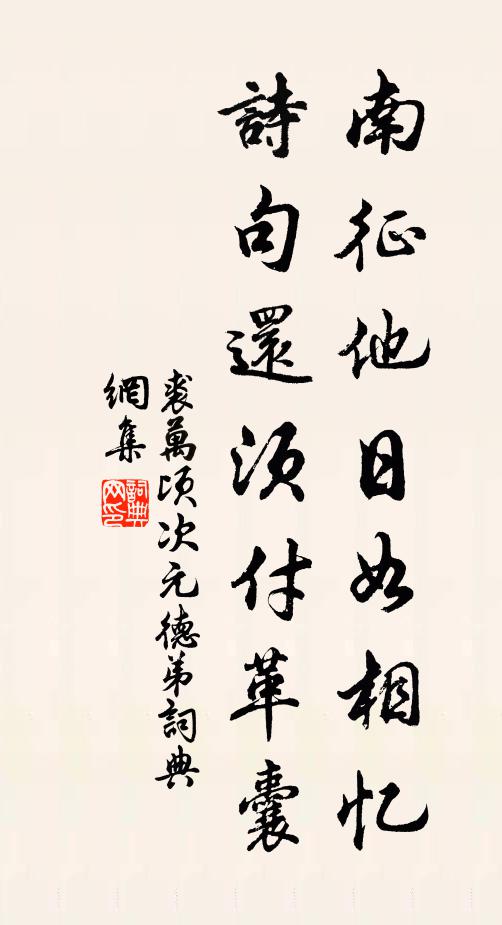 南征他日如相忆
詩句還須付革囊
裘萬頃次元德弟詞典
網集
詞典
网印